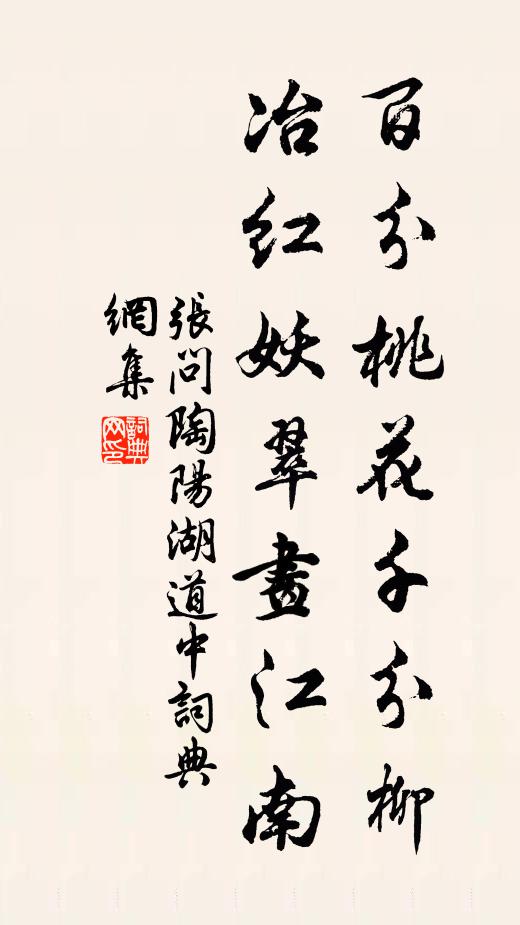 百分桃花千分柳
冶紅妖翠畫江南
張問陶陽湖道中詞典
網集
詞典
网印